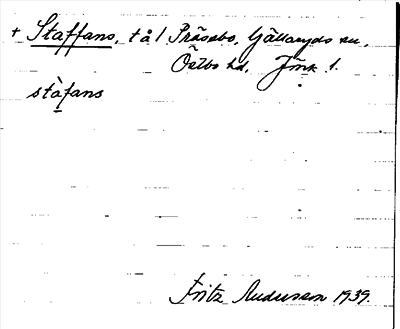 + Staffans, t å l Präsabo, Gällaryds sn,
Östbo hd, Jönk. l.
stàfans
Fritz Andersson 1939.